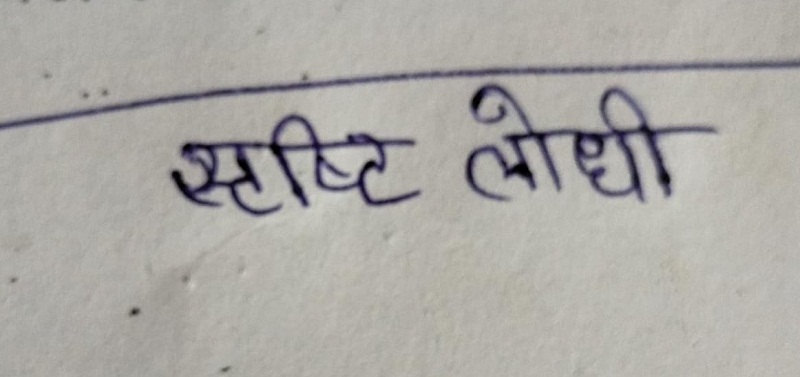 सृष्टि लोधी